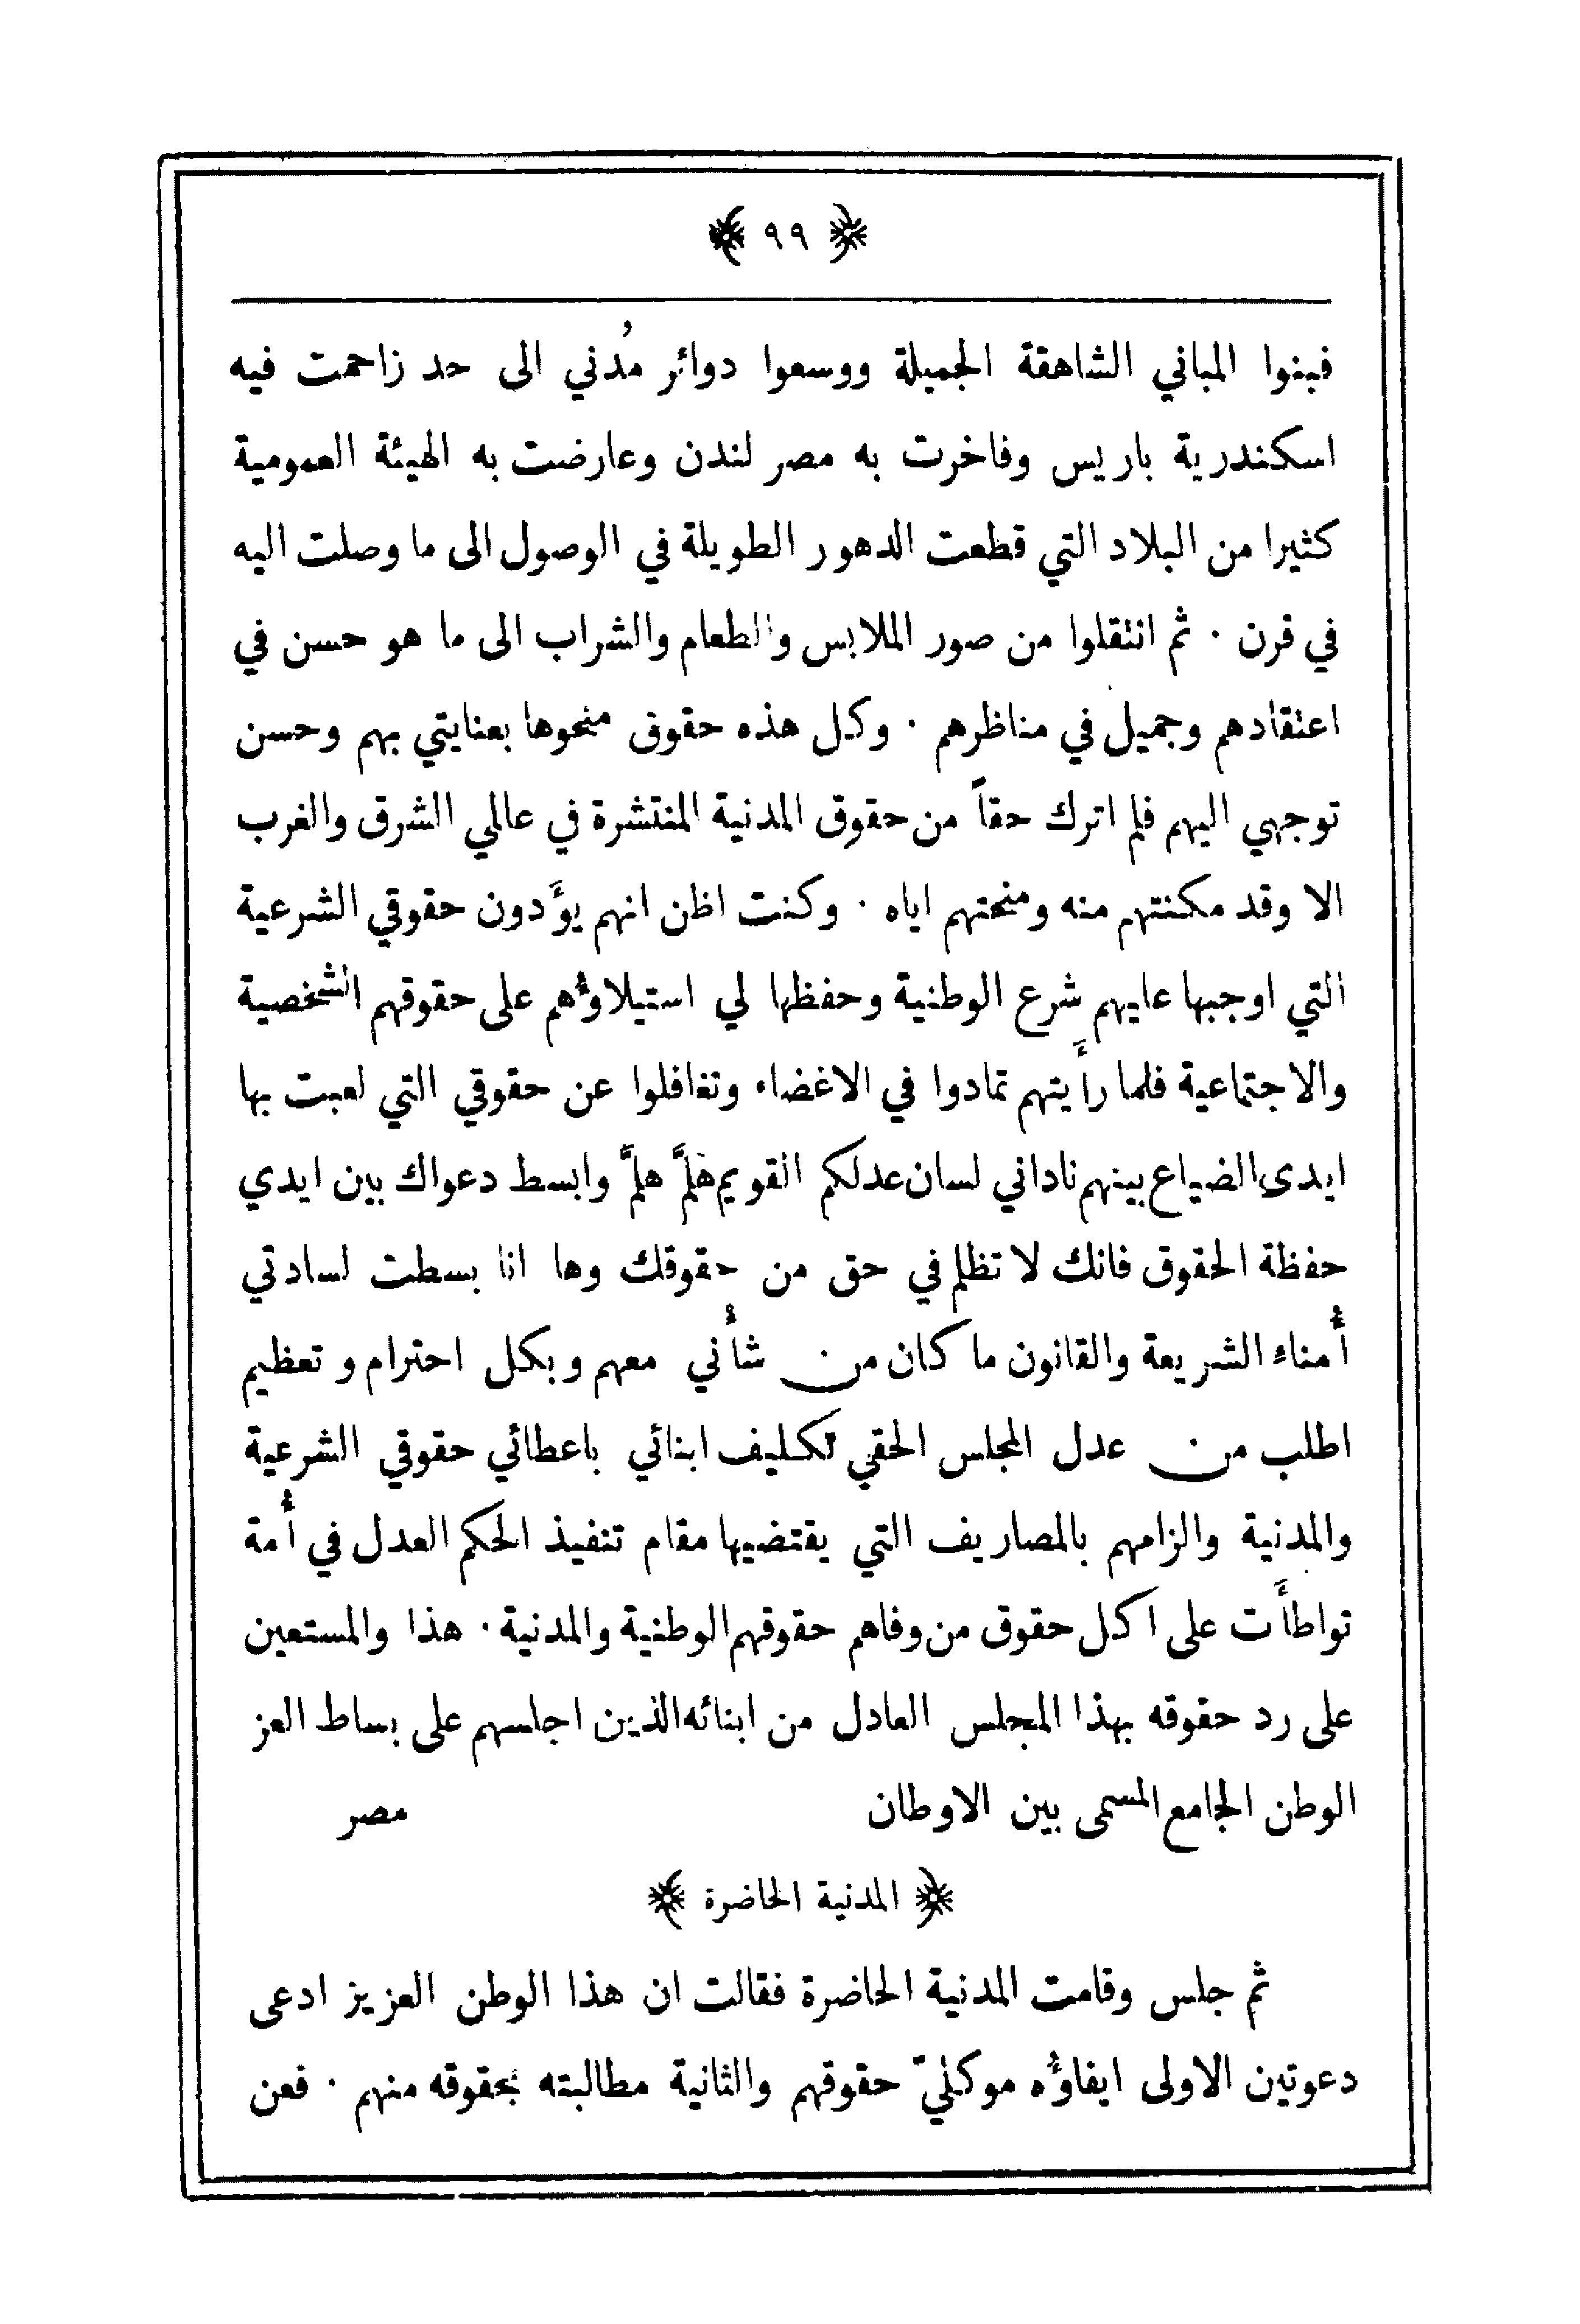 ﴿ ٩٩ ﴾
فبنوا المباني الشاهقة الجميلة ووسعوا دوائر مُدني الى حد زاحمت فيه
اسكندرية باريس وفاخرت به مصر لندن وعارضت به الهيئة العمومية
كثيرا من البلاد التي قطعت الدهور الطويلة في الوصول الى ما وصلت اليه
في قرن ٠ ثم انتقلوا من صور الملابس والطعام والشراب الى ما هو حسن في
اعتقادهم وجميل في مناظرهم ٠ وكل هذه حقوق منحوها بعنايتي بهم وحسن
توجهي اليهم فلم اترك حقاً من حقوق المدنية المنتشرة في عالمي الشرق والغرب
الا وقد مكنتهم منه ومنحتهم اياه ٠ وكنت اظن انهم يؤَدون حقوقي الشرعية
التي اوجبها عليهم شرع الوطنية وحفظها لي استيلاؤهم على حقوقهم الشخصية
والاجتماعية فلما رأَيتهم تمادوا في الاغضاء وتغافلوا عن حقوقي التي لعبت بها
ايدى الضياع بينهم ناداني لسان عدلكم القويم هلمَّ هلمَّ وابسط دعواك بين ايدي
حفظة الحقوق فانك لا تظلم في حق من حقوقك وها انا بسطت لسادتي
أُمناء الشريعة والقانون ما كان من شأْني معهم وبكل احترام وتعظيم
اطلب من عدل المجلس الحقي تكليف ابنائي باعطائي حقوقي الشرعية
والمدنية والزامهم بالمصاريف التي يقتضيها مقام تنفيذ الحكم العدل في أُمة
تواطأَت على اكل حقوق من وفاهم حقوقهم الوطنية والمدنية ٠ هذا والمستعين
على رد حقوقه بهذا المجلس العادل من ابنائه الذين اجلسهم على بساط العز
الوطن الجامع المسمى بين الاوطان مصر
﴿ المدنية الحاضرة ﴾
ثم جلس وقامت المدنية الحاضرة فقالت ان هذا الوطن العزيز ادعى
دعوتين الاولى ايفاؤُه موكليّ حقوقهم والثانية مطالبته بحقوقه منهم ٠ فعن